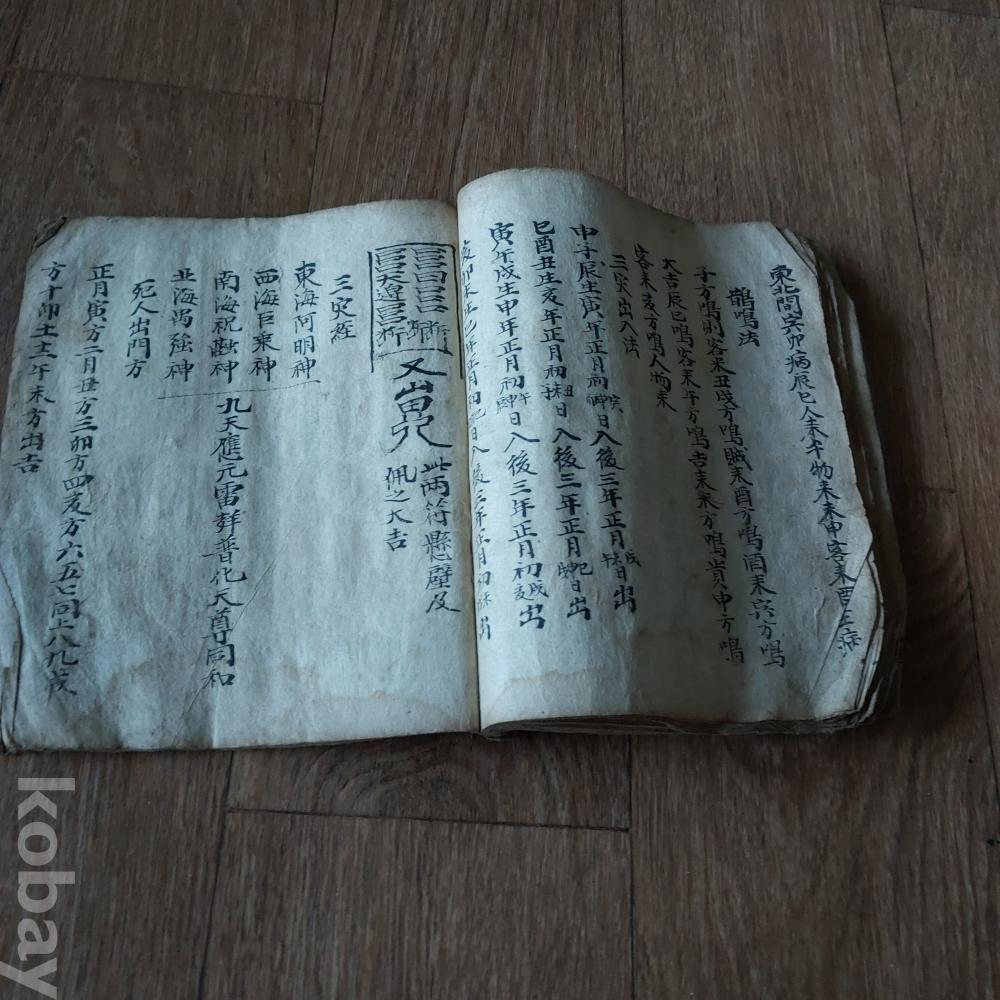 東北間寅卯病辰巳人来午物来未申客来酉
鵲鳴法
子方鳴則客来丑戌方鳴賊来酉方鳴酒来寅方鳴
大吉辰巳鳴客来午方鳴吉来未方鳴貴申方鳴
客来亥方鳴人物来
三災出入法
申子辰生寅年正月初 日入後三年正月 日出
巳酉丑生亥年正月初 日入後三年正月 日出
寅午戌生申年正月初 日入後三年正月初 出
亥卯未生巳年正月初 日入後三年正月初 出
又
此兩符懸壁及
佩之大吉
三災経
東海阿明神
西海巨乘神
南海祝融神
北海禺强神
九天應元雷聲普化天尊同和
死人出門方
正月寅方二月丑方三卯方四亥方六五七同 八九戌
方十卯 午未方出吉
kobay